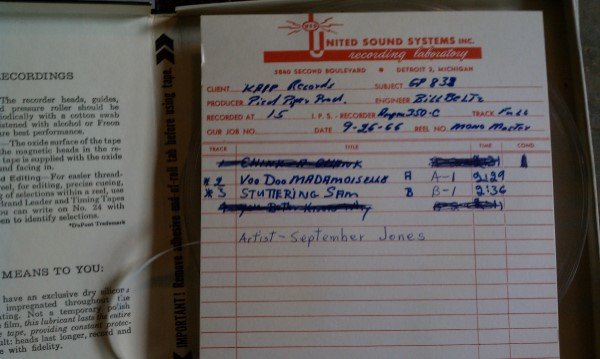 ECORDINGS
The recorder heads, guides,
d pressure roller should be
iodically with a cotton swab
istened with alcohol or Freon
ure best performance.
—The oxide surface of the tape
the magnetic heads in the re-
tape is supplied with the oxide
und facing in.
d Editing—For easier thread-
reel, for editing, precise cueing,
g of selections within a reel, use
rand Leader and Timing Tapes
you can write on No. 24 with
pen to identify selections.
*DuPont Trademark
MEANS TO YOU:
have an exclusive dry silicone
impregnated throughout the
ating. Not a temporary polish
film, this lubricant lasts the entire
tape, providing constant protec-
ult: heads last longer, record and
e with fidelity.
IMPORTANT! Remove adhesive end-of-roll tab before using tape.
USS
UNITED SOUND SYSTEMS INC.
recording laboratory
5840 SECOND BOULEVARD DETROIT 2, MICHIGAN
CLIENT KAPP Records SUBJECT 838
PRODUCER Pied Piper Prod. ENGINEER Bill Beltz
RECORDED AT 15 I.P.S. - RECORDER Ampex 350-C TRACK FULL
OUR JOB NO. DATE 9-26-66 REEL NO. MONO Master
TRACK TITLE TIME COND
*2 VOO DOO MADAMOISELLE A A-1 2:29
*3 STUTTERING SAM B B-1 2:36
Artist - September Jones